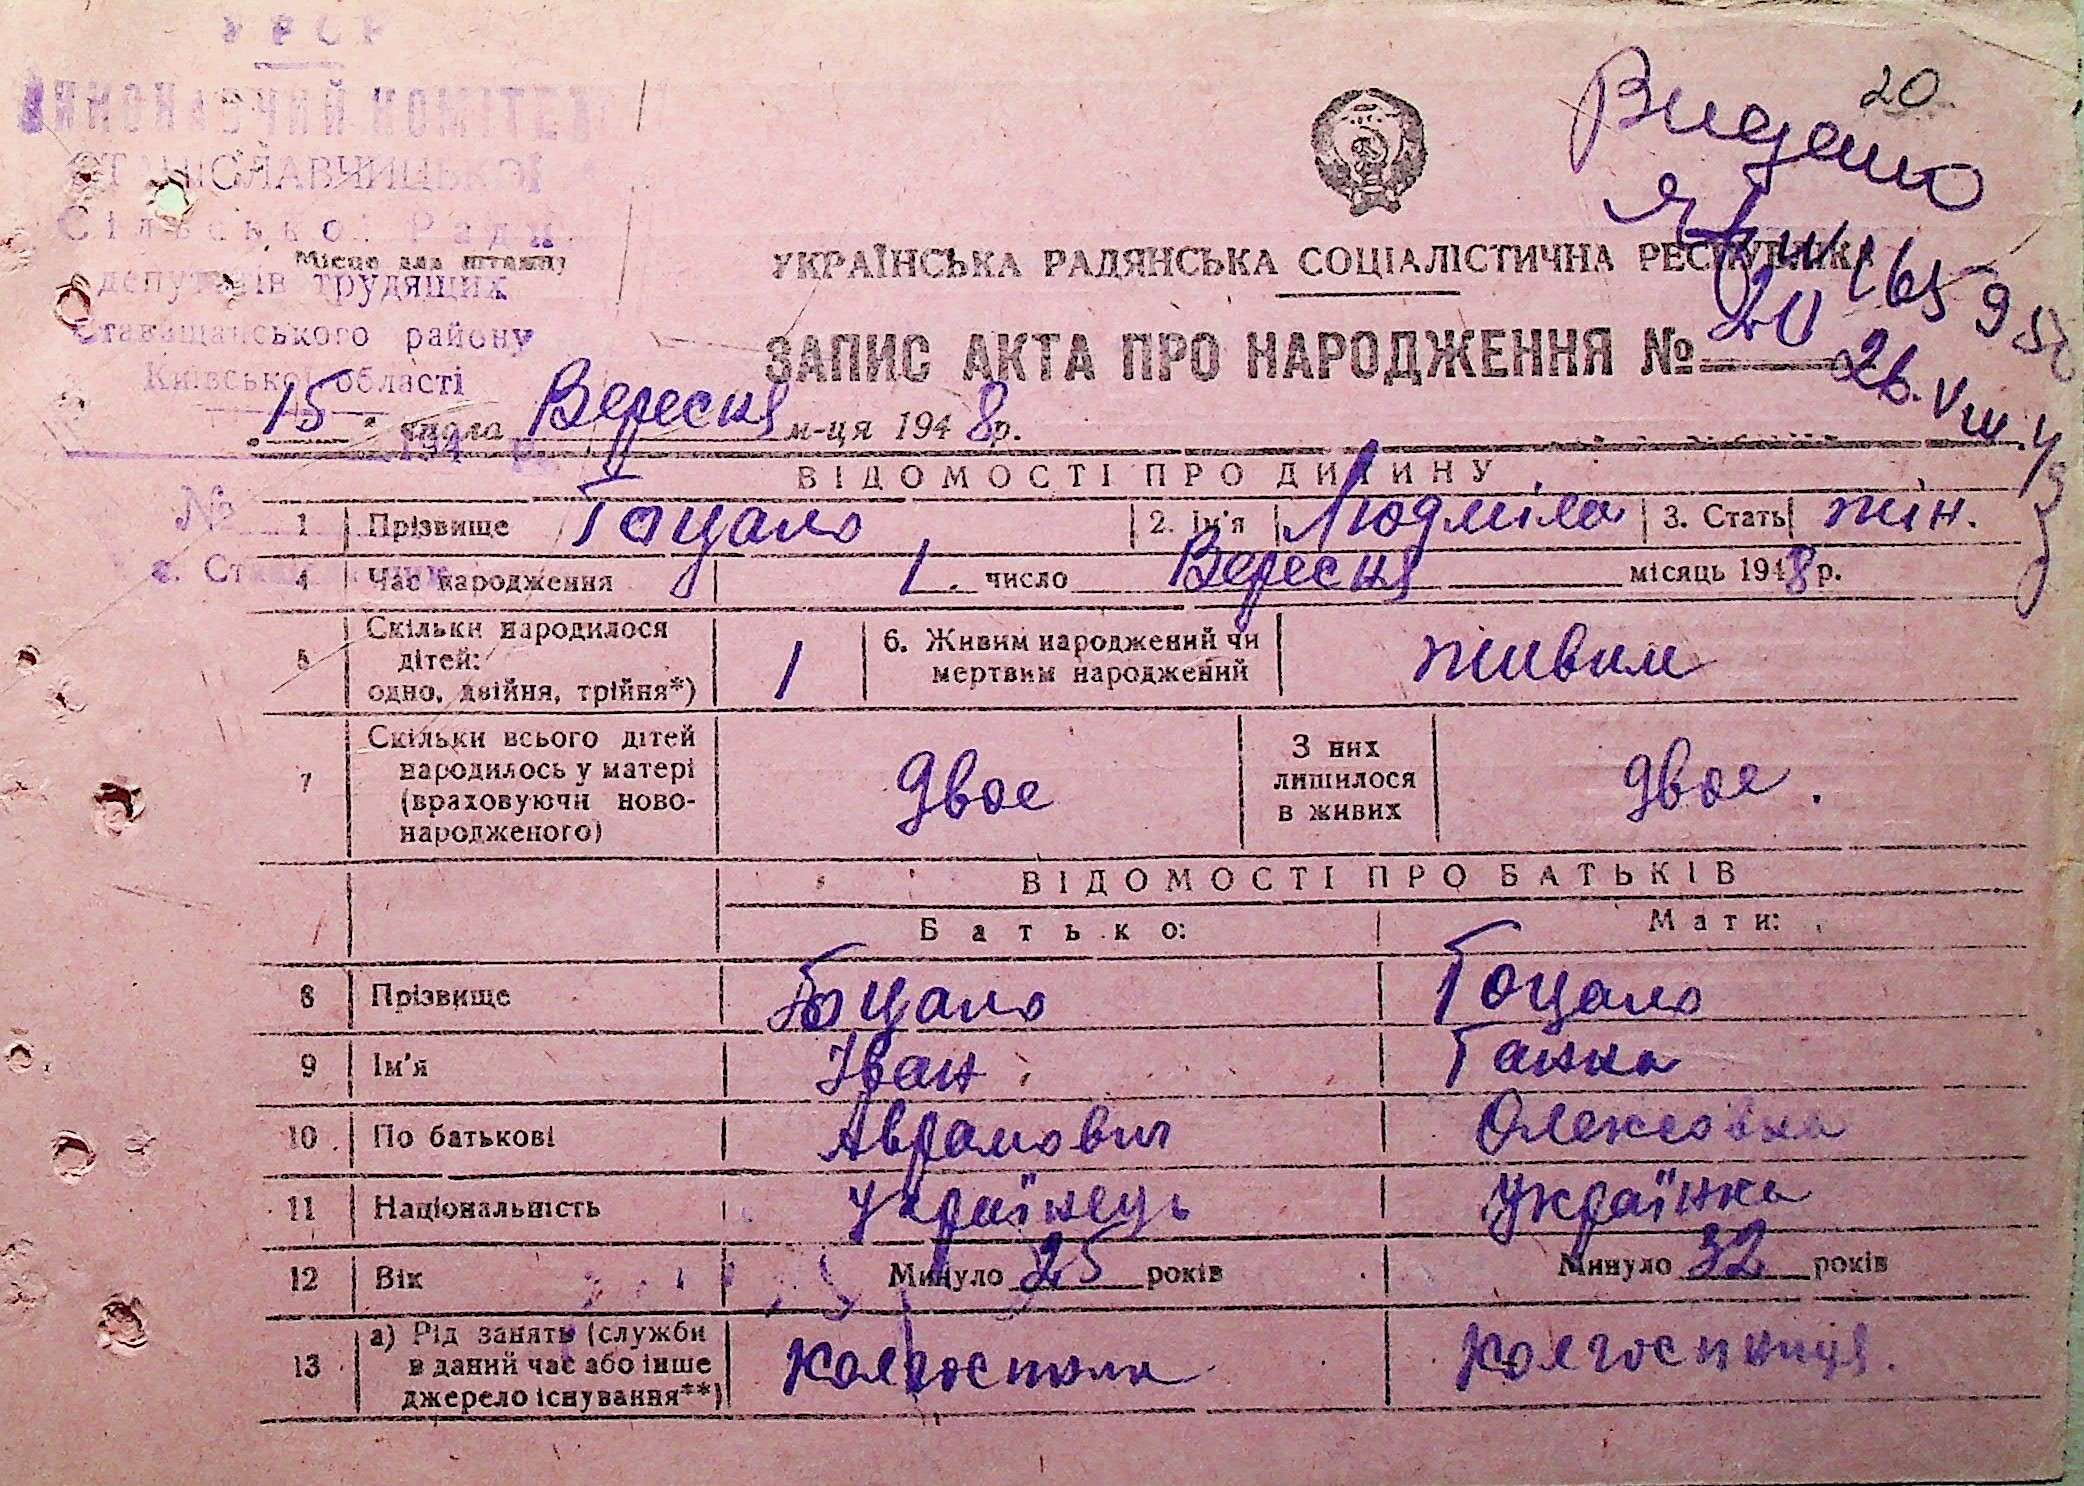 УРСР
ВИКОНАВЧИЙ КОМІТЕТ
СТАНІСЛАВЧИЦЬКОЇ
Сільської Ради
Місце для штампу
депутатів трудящих
Ставищанського району
Київської області
194 р.
№
20
Видано
26.VIII.
УКРАЇНСЬКА РАДЯНСЬКА СОЦІАЛІСТИЧНА РЕСПУБЛІКА
ЗАПИС АКТА ПРО НАРОДЖЕННЯ № 20
„15" числа Вересня м-ця 1948р.
ВІДОМОСТІ ПРО ДИТИНУ
1 Прізвище Гоцало 2. Ім'я Людміла 3. Стать жін.
4 Час народження 1 число Вересня місяць 1948р.
5 Скільки народилося дітей: одно, двійня, трійня*) 1 6. Живим народжений чи мертвим народжений живим
7 Скільки всього дітей народилось у матері (враховуючи ново-народженого) двое З них лишилося в живих двое.
ВІДОМОСТІ ПРО БАТЬКІВ
Батько: Мати:
8 Прізвище Гоцало Гоцало
9 Ім'я Іван Ганна
10 По батькові Аврамович Олексовна
11 Національність Українець Українка
12 Вік Минуло 25 років Минуло 32 років
13 а) Рід занять (служби в даний час або інше джерело існування**) колгоспник колгоспниця.